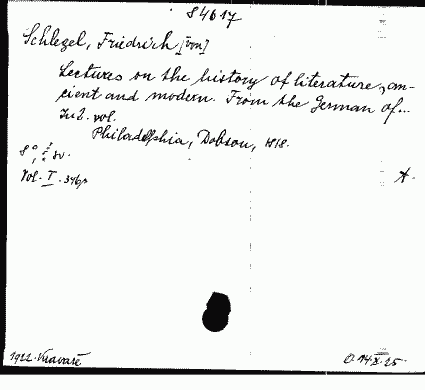 84617
Schlegel, Friedrich [von]
Lectures on the history of literature, an-
cient and modern. From the German of...
In 2. vol.
Philadelphia, Dobson, 1818.
8°,
Vol. I. 346p
A.
1922.
O. 14.X.25.